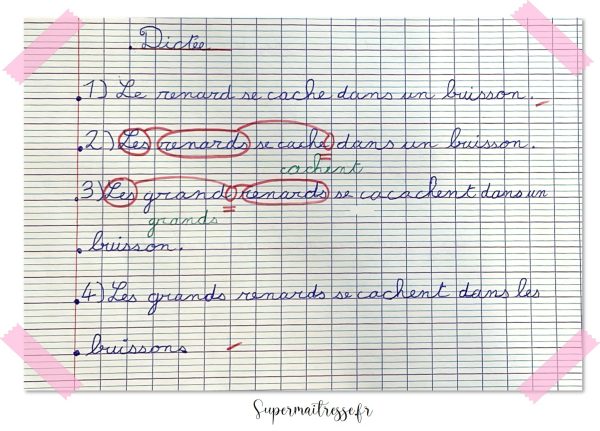 . Dictée.
.1) Le renard se cache dans un buisson.
.2) Les renards se cache dans un buisson.
cachent
.3) Les grand renards se cacachent dans un
grands
. buisson.
.4) Les grands renards se cachent dans les
. buissons
Supermaitresse.fr